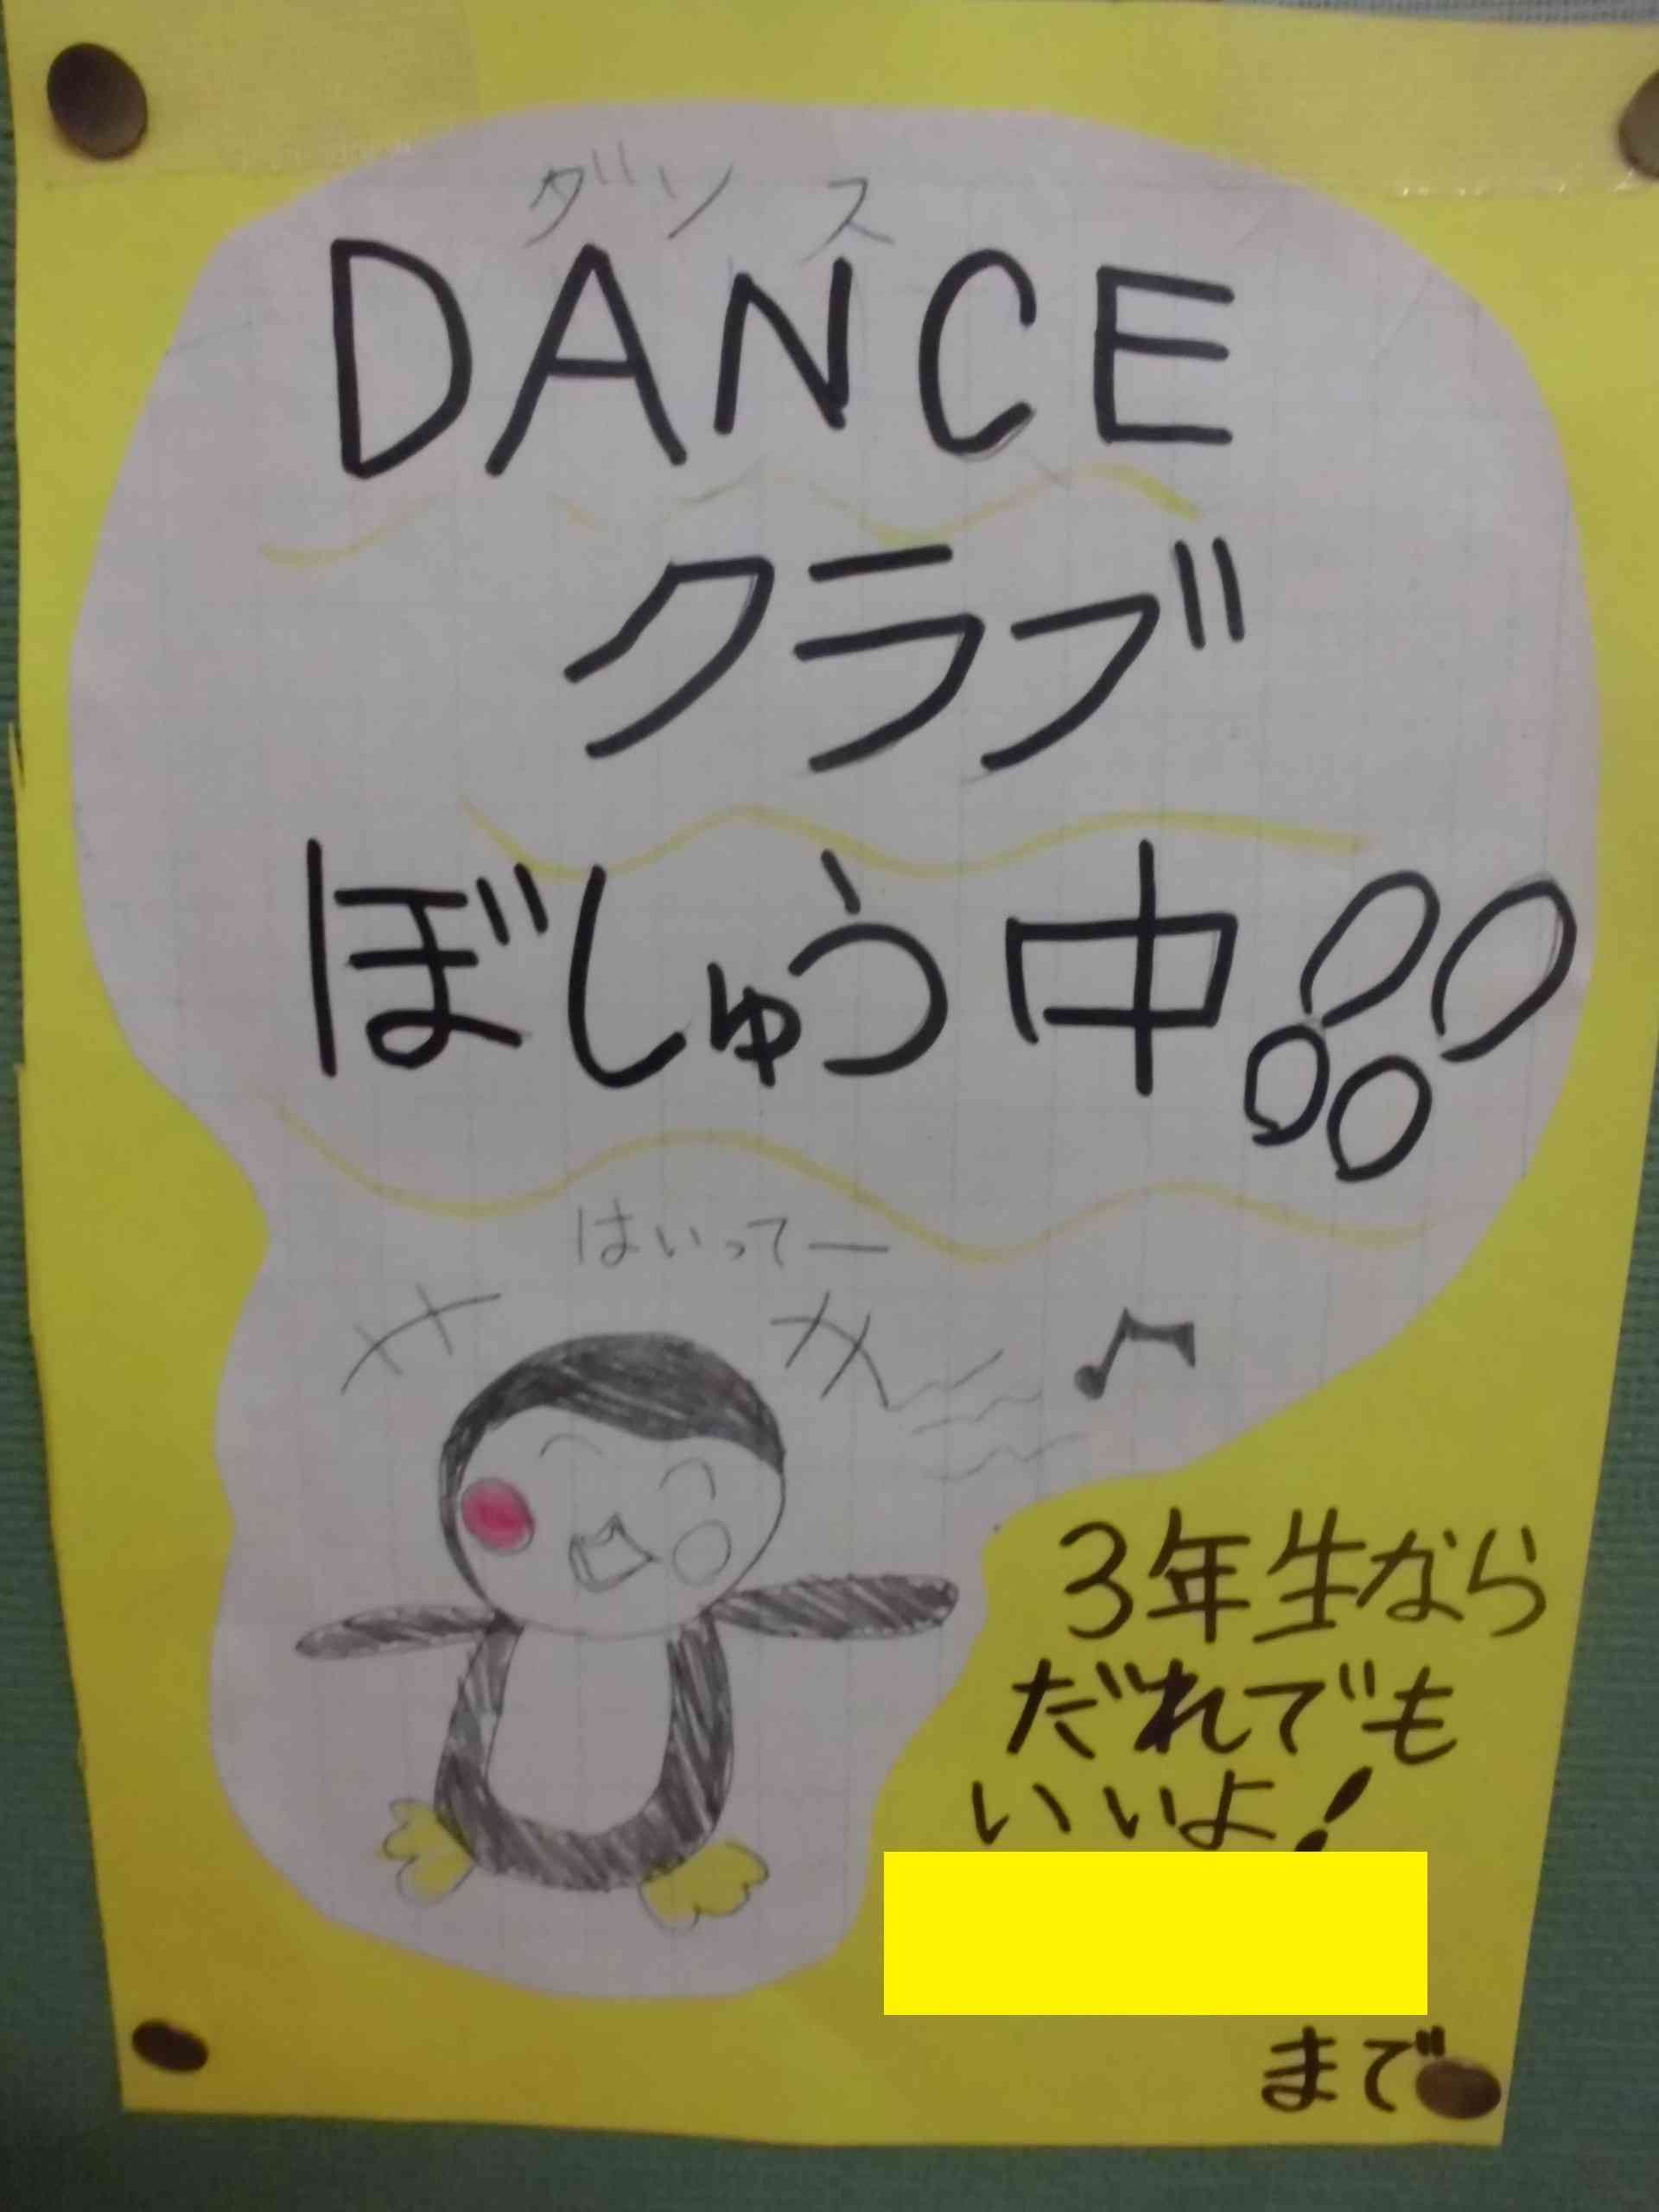 ダンス
DANCE
クラブ
ぼしゅう中!!
はいってー
3年生なら
だれでも
いいよ!
まで